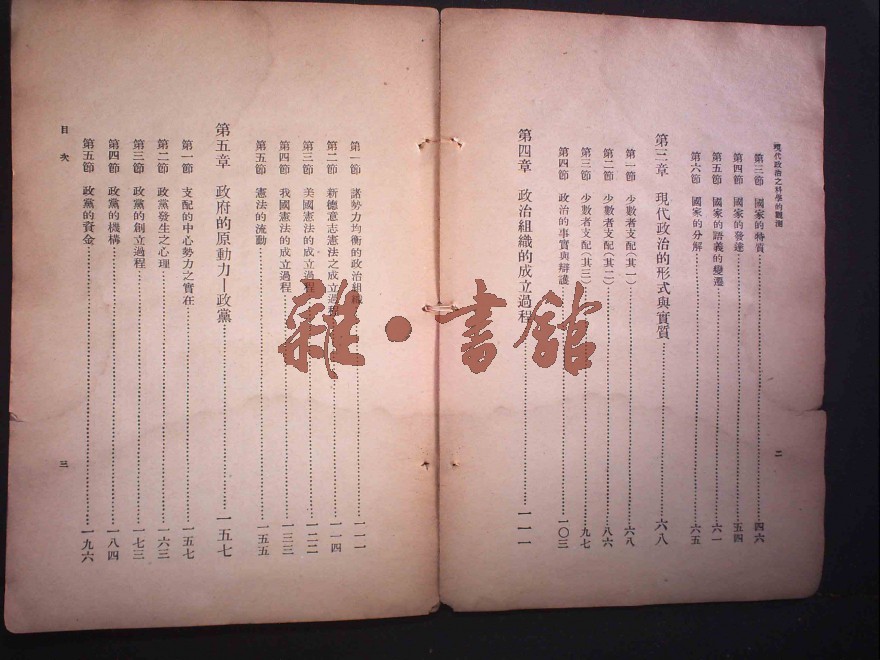 現代政治之科學的觀測
第三節　國家的特質……四六
第四節　國家的發達……五四
第五節　國家的語義的變遷……六一
第六節　國家的分解……六五
第三章　現代政治的形式與實質……六八
第一節　少數者支配（其一）……六八
第二節　少數者支配（其二）……八六
第三節　少數者支配（其三）……九七
第四節　政治的事實與辯護……一〇三
第四章　政治組織的成立過程……一一一
二
第一節　諸勢力均衡的政治組織……一一一
第二節　新德意志憲法之成立過程……一一四
第三節　美國憲法的成立過程……一二二
第四節　我國憲法的成立過程……一三三
第五節　憲法的流動……一五五
第五章　政府的原動力—政黨……一五七
第一節　支配的中心勢力之實在……一五七
第二節　政黨發生之心理……一六三
第三節　政黨的創立過程……一七三
第四節　政黨的機構……一八四
第五節　政黨的資金……一九六
目次
三
雜·書館